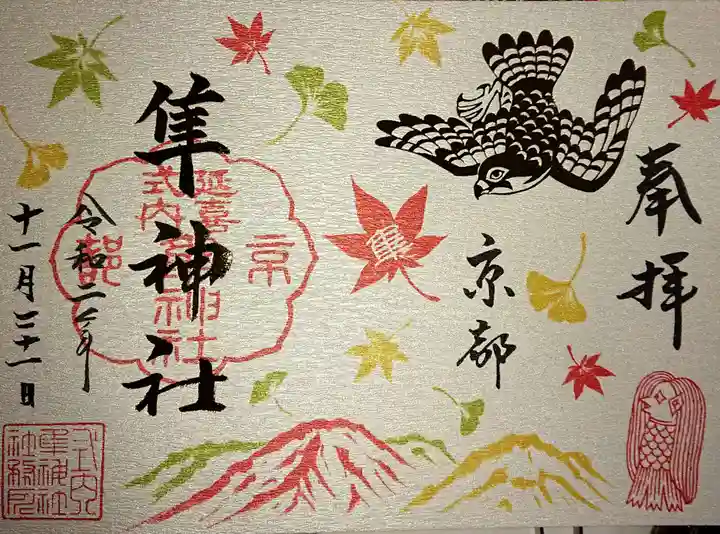 奉拝
京都
隼
隼神社
延喜
式内
隼神社
京都
令和二年
十一月二十一日
式内
隼神社
社務所